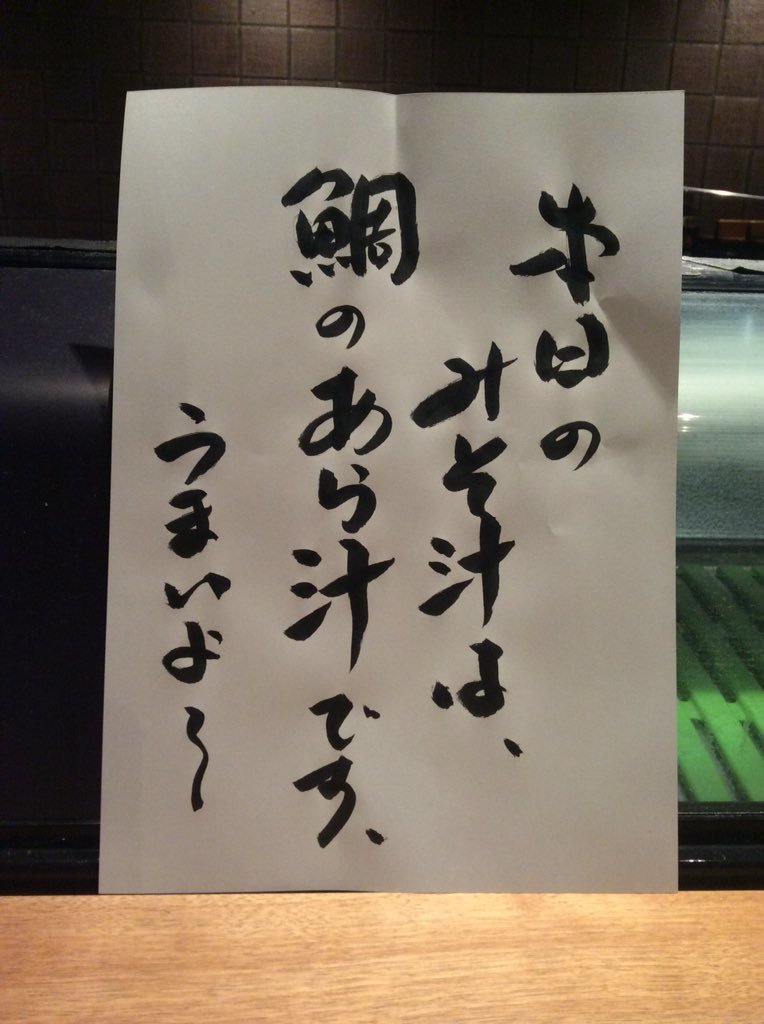 本日の
みそ汁は、
鯛のあら汁です、
うまいよ〜